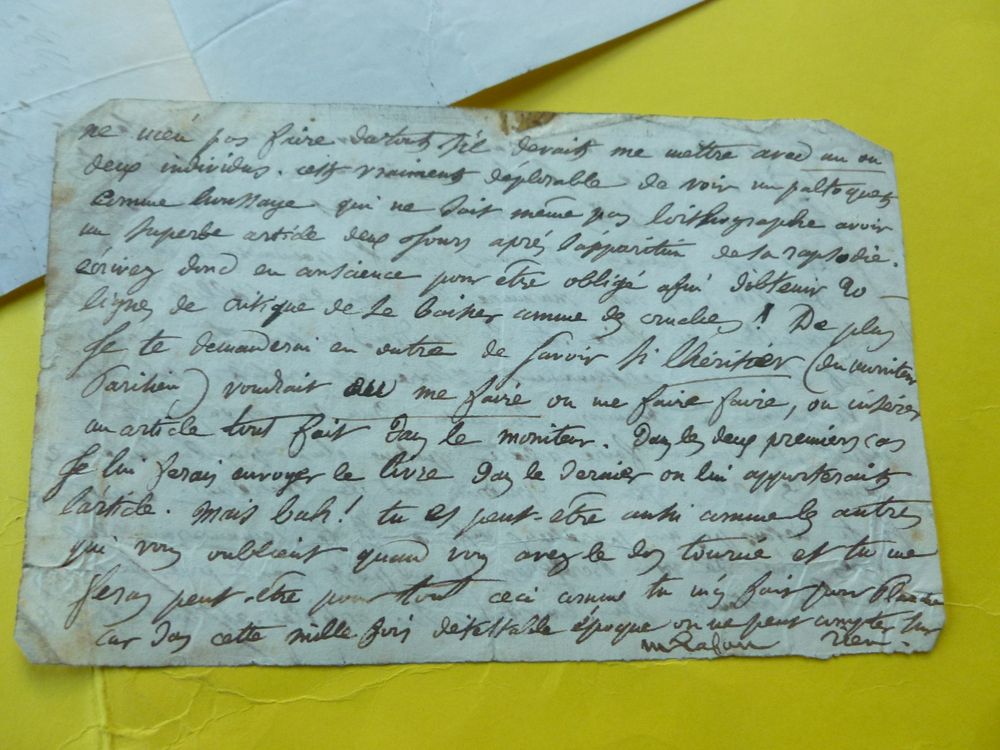 ne pas faire du tout s'il devait me mettre avec un ou
deux individus. c'est vraiment déplorable de voir un paltoquet
comme houssaye qui ne sait même pas l'orthographe avoir
un superbe article deux jours après l'apparition de sa rapsodie.
écrivez donc en conscience pour être obligé afin d'obtenir 20
lignes de critique de se baisser comme des cruches! De plus
Je te demanderai en outre de savoir si lhéritier (du courrier
Parisien) voudrait me faire ou me faire faire, ou insérer
un article tout fait dans le moniteur. Dans les deux premiers cas
Je lui ferais envoyer le livre dans le dernier on lui apporterait
l'article. Mais bah! tu es peut-être aussi comme les autres
qui vous oublient quand vous avez le dos tourné et tu me
feras peut-être pour tout ceci comme tu m'as fait pour
car dans cette mille fois détestable époque on ne peut compter sur
rien.